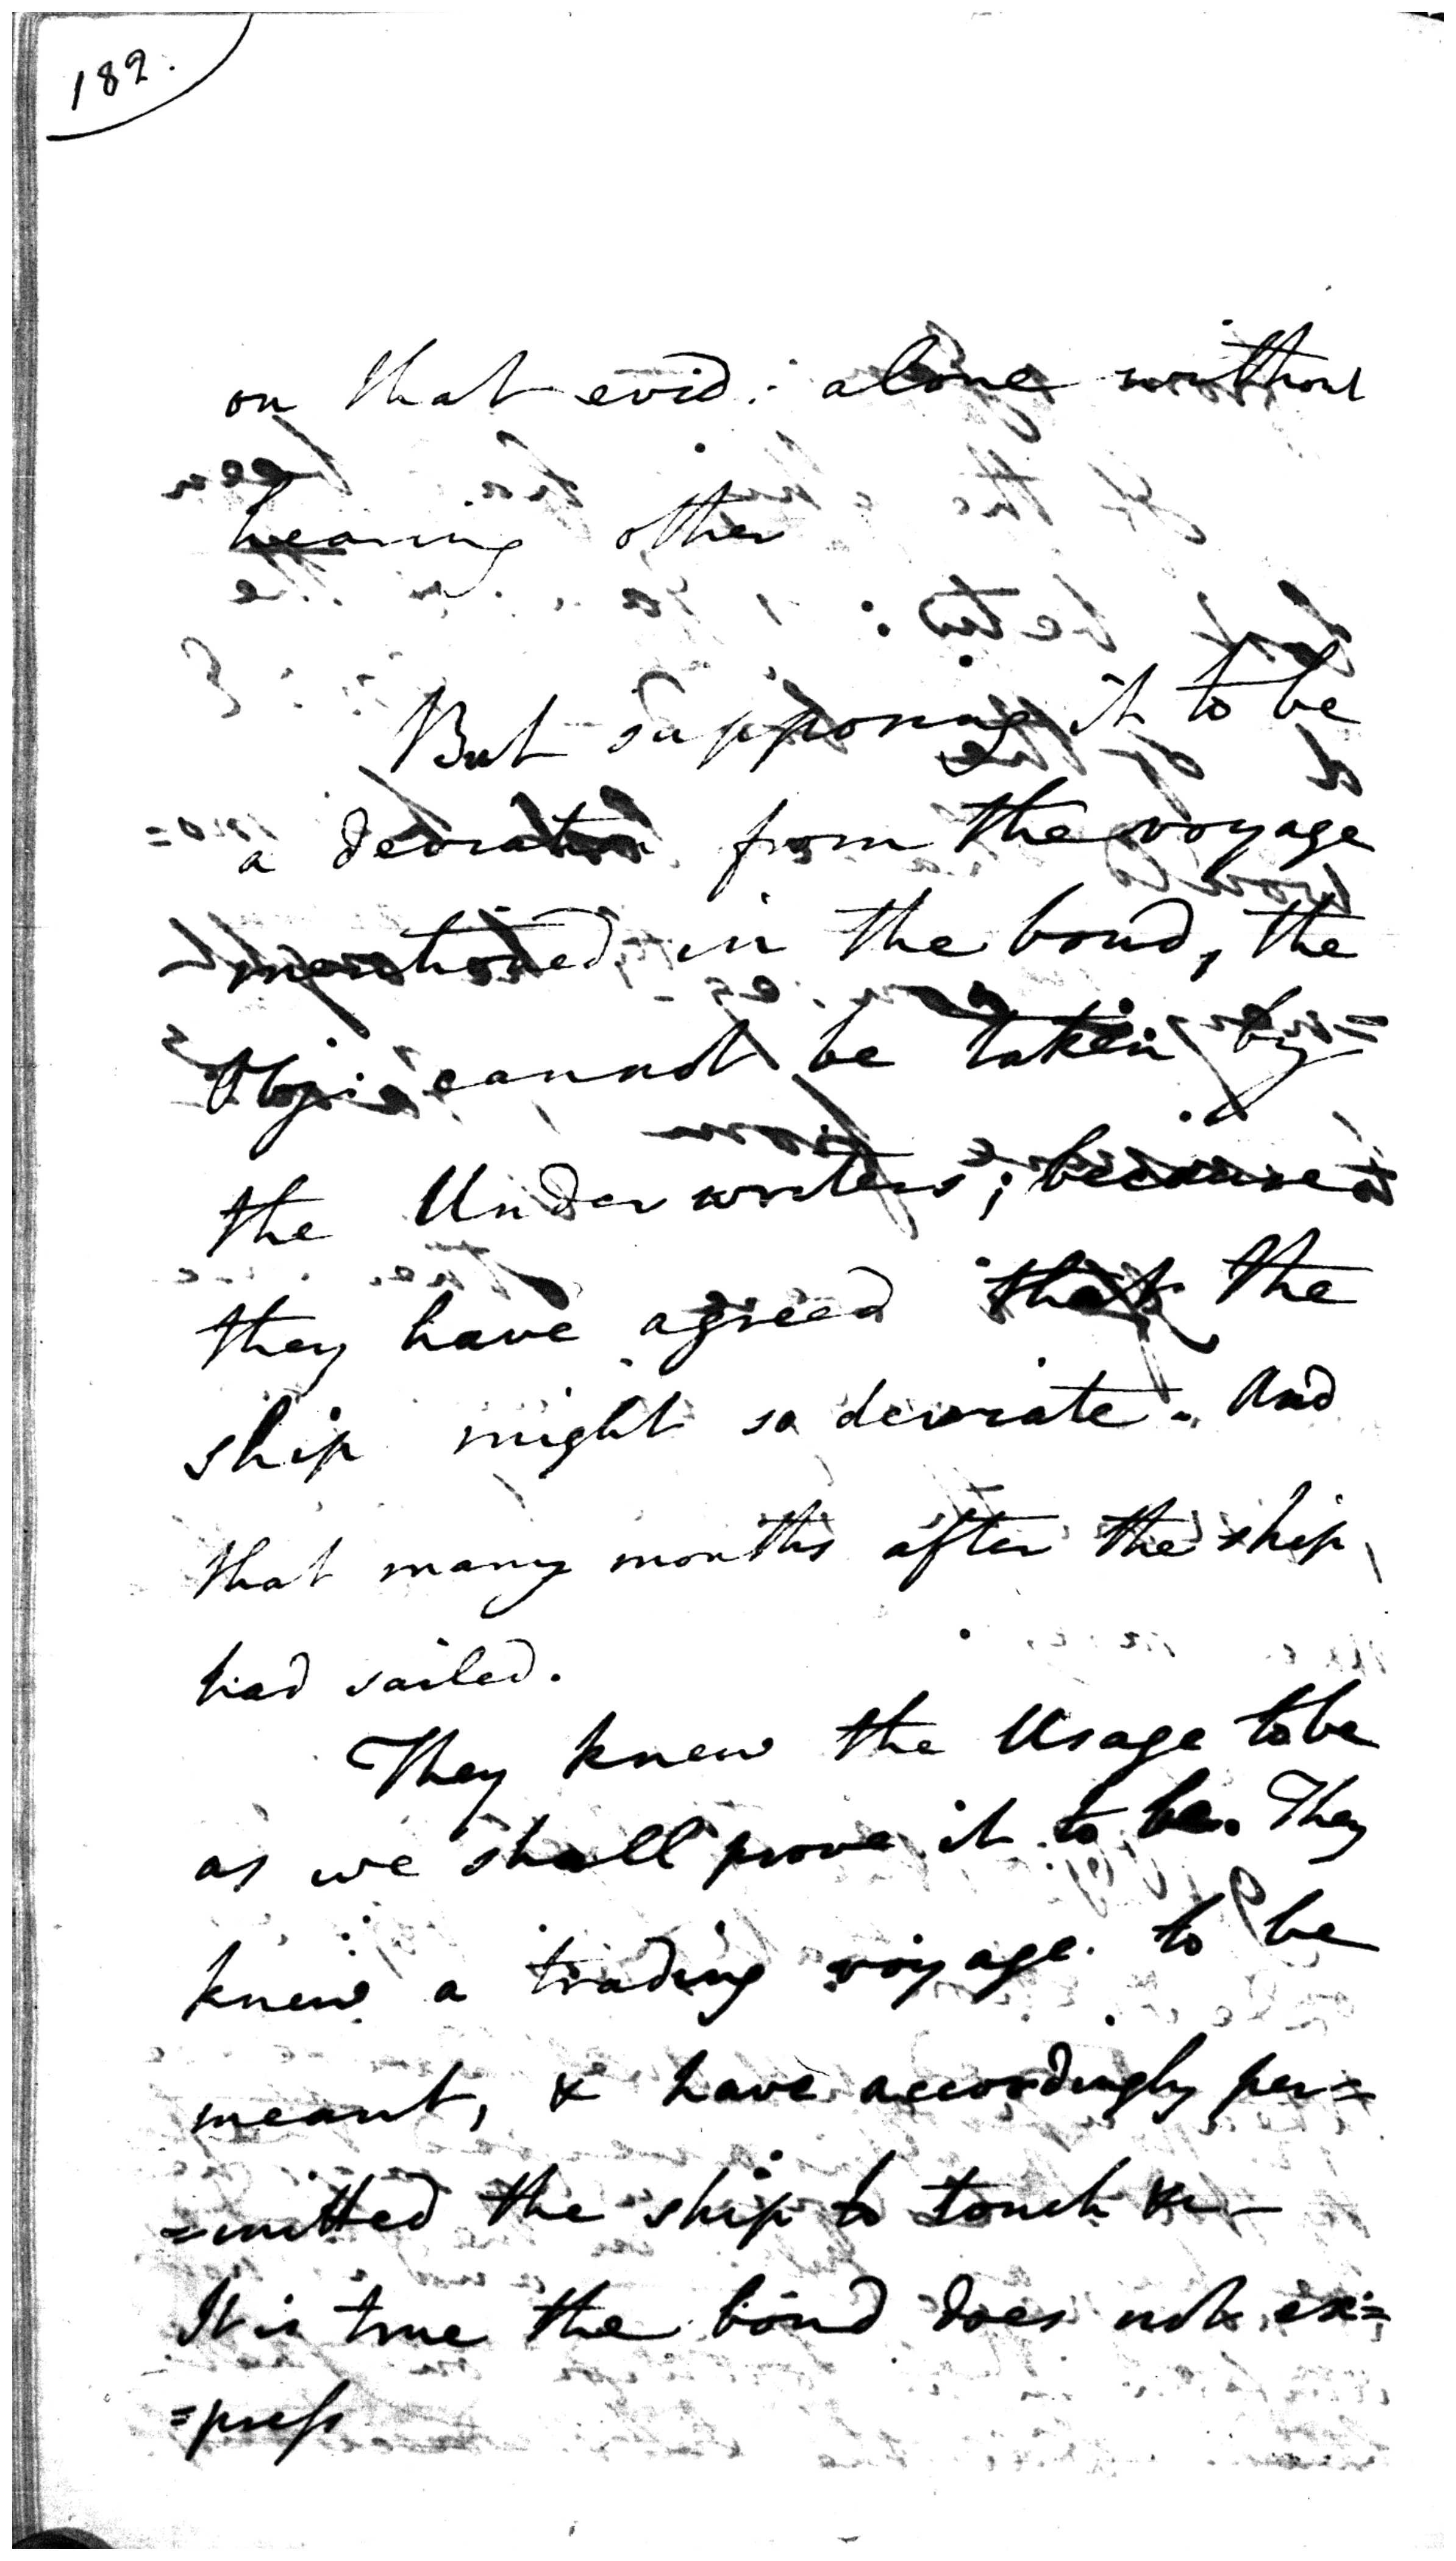 182.
on that evid: alone without
hearing other
But supposing it to be
a deviation from the voyage
mentioned in the bond, the
Obj: cannot be taken by
the Underwriters; because
they have agreed that the
ship might so deviate. And
that many months after the ship
had sailed.
They knew the Usage to be
as we shall prove it to be. They
knew a trading voyage to be
meant, & have accordingly per=
=mitted the ship to touch &c—
It is true the bond does not ex=
=press